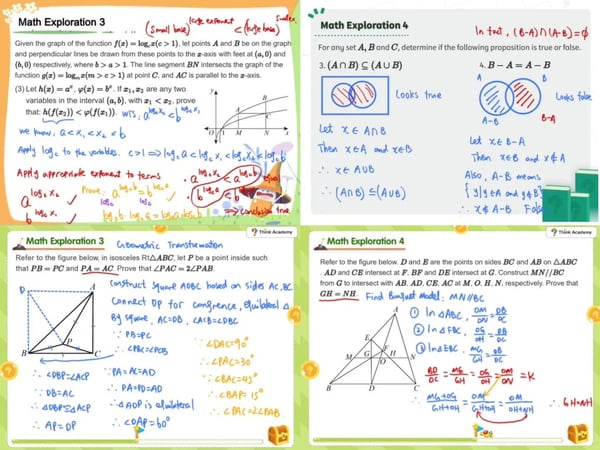 Math Exploration 3
(Small base) large exponent < (large base) small e
Given the graph of the function f(x) = log_c x(c > 1), let points A and B be on the graph
and perpendicular lines be drawn from these points to the x-axis with feet at (a, 0) and
(b, 0) respectively, where b > a > 1. The line segment BN intersects the graph of the
function g(x) = log_m x(m > c > 1) at point C, and AC is parallel to the x-axis.
(3) Let h(x) = a^x, φ(x) = b^x. If x₁, x₂ are any two
variables in the interval (a, b), with x₁ < x₂, prove
that: h(f(x₂)) < φ(f(x₁)). WTS:
We know: a < x₁ < x₂ < b
Apply log_c to the variables. c > 1 ⟹ log_c a < log_c x₁ < log_c x₂ < log_c b
Apply appropriate exponent to terms
Prove: a^(log_c b) = b^(log_c a)
log_c b · log_c a = log_c a · log_c b
⟹ conclusion true
y
A
B
C
O
1
M
N
x
Math Exploration 4
In fact, (B-A)∩(A-B)=∅
For any set A, B and C, determine if the following proposition is true or false.
3. (A ∩ B) ⊆ (A ∪ B)
4. B − A = A − B
Looks true
A
B
Looks false
A-B
B-A
Let x ∈ A∩B
Then x∈A and x∈B
∴ x ∈ A∪B
∴ (A∩B) ⊆ (A∪B)
Let x∈ B-A
Then x∈B and x∉A
Also, A-B means
{y|y∈A and y∉B}
∴ x∉ A-B False
Think Academy
Math Exploration 3
Geometric Transformation
Refer to the figure below, in isosceles Rt△ABC, let P be a point inside such
that PB = PC and PA = AC. Prove that ∠PAC = 2∠PAB.
Construct square ADBC based on sides AC, BC.
Connect DP for congruence, equilateral △
By square, AC=DB, ∠ACB=∠DBC
D
A
P
B
C
∵ PB=PC
∴ ∠PBC=∠PCB
∴ ∠DBP=∠ACP
∵ DB=AC
∴ △DBP≅△ACP
∴ AP=DP
∵ PA=AC=AD
∴ PA=PD=AD
∴ △ADP is equilateral
∴ ∠DAP=60°
∵ ∠DAC=90°
∴ ∠PAC=30°
∵ ∠BAC=45°
∴ ∠BAP=15°
∴ ∠PAC=2∠PAB
Think Academy
Math Exploration 4
Refer to the figure below. D and E are the points on sides BC and AB on △ABC
. AD and CE intersect at F. BF and DE intersect at G. Construct MN//BC
from G to intersect with AB, AD, CE, AC at M, O, H, N, respectively. Prove that
GH = NH.
Find Burjuet model: MN//BC
A
E
F
M
G
O
H
N
B
D
C
① In △ABC, OM/ON = DB/DC
② In △FBC, OG/OH = DB/DC
③ In △EBC, MG/GH = DB/DC
BD/DC = MG/GH = OG/OH = OM/ON = K
∴ MG+OG/GH+OH = OM/GH+OH = OM/OH+NH
∴ GH=NH